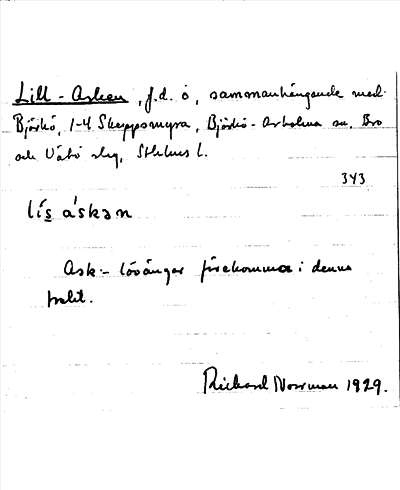 Lill-Asken, f.d. ö, sammanhängande med
Björkö, 1-4 Skeppsmyra, Björkö-Arholma sn, Bro
och Vätö slg, Sthlms l.
343
lís áskan
Ask- lövängar förekomma i denna
trakt.
Rickard Norrman 1929.